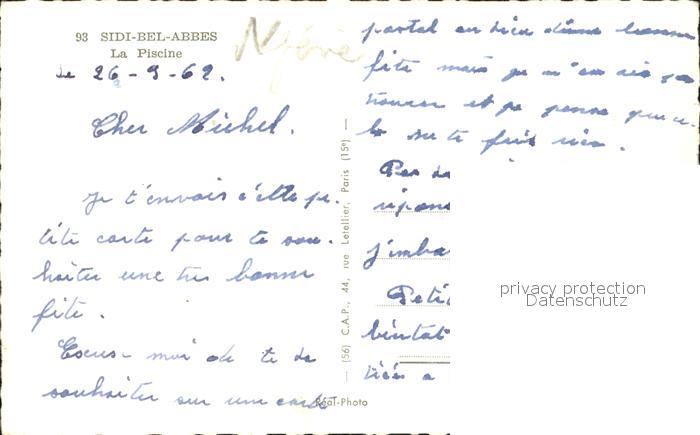 93 SIDI-BEL-ABBES
La Piscine
Le 26-9-62.
Cher Michel.
Je t'envois c'ette pe-
tite carte pour te sou-
haiter une tres bonne
fête.
Escuse moi de te de
souhaiter sur une carte
postal au lieu d'une bonne
fête mais je n'en ais pas
trouver et je pense que ce-
la ne te fais rien.
Pas de
répons
j'emba
Petit
bientot
(56) C.A.P., 44, rue Letellier, Paris (15e)
Réal-Photo
privacy protection
Datenschutz